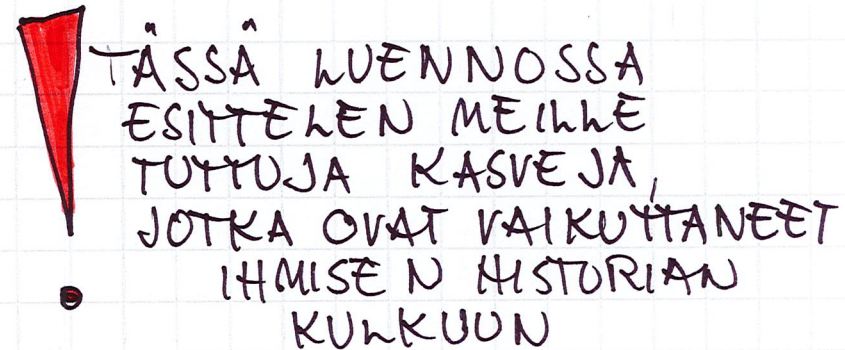 TÄSSÄ LUENNOSSA
ESITTELEN MEILLE
TUTTUJA KASVEJA,
JOTKA OVAT VAIKUTTANEET
IHMISEN HISTORIAN
KULKUUN